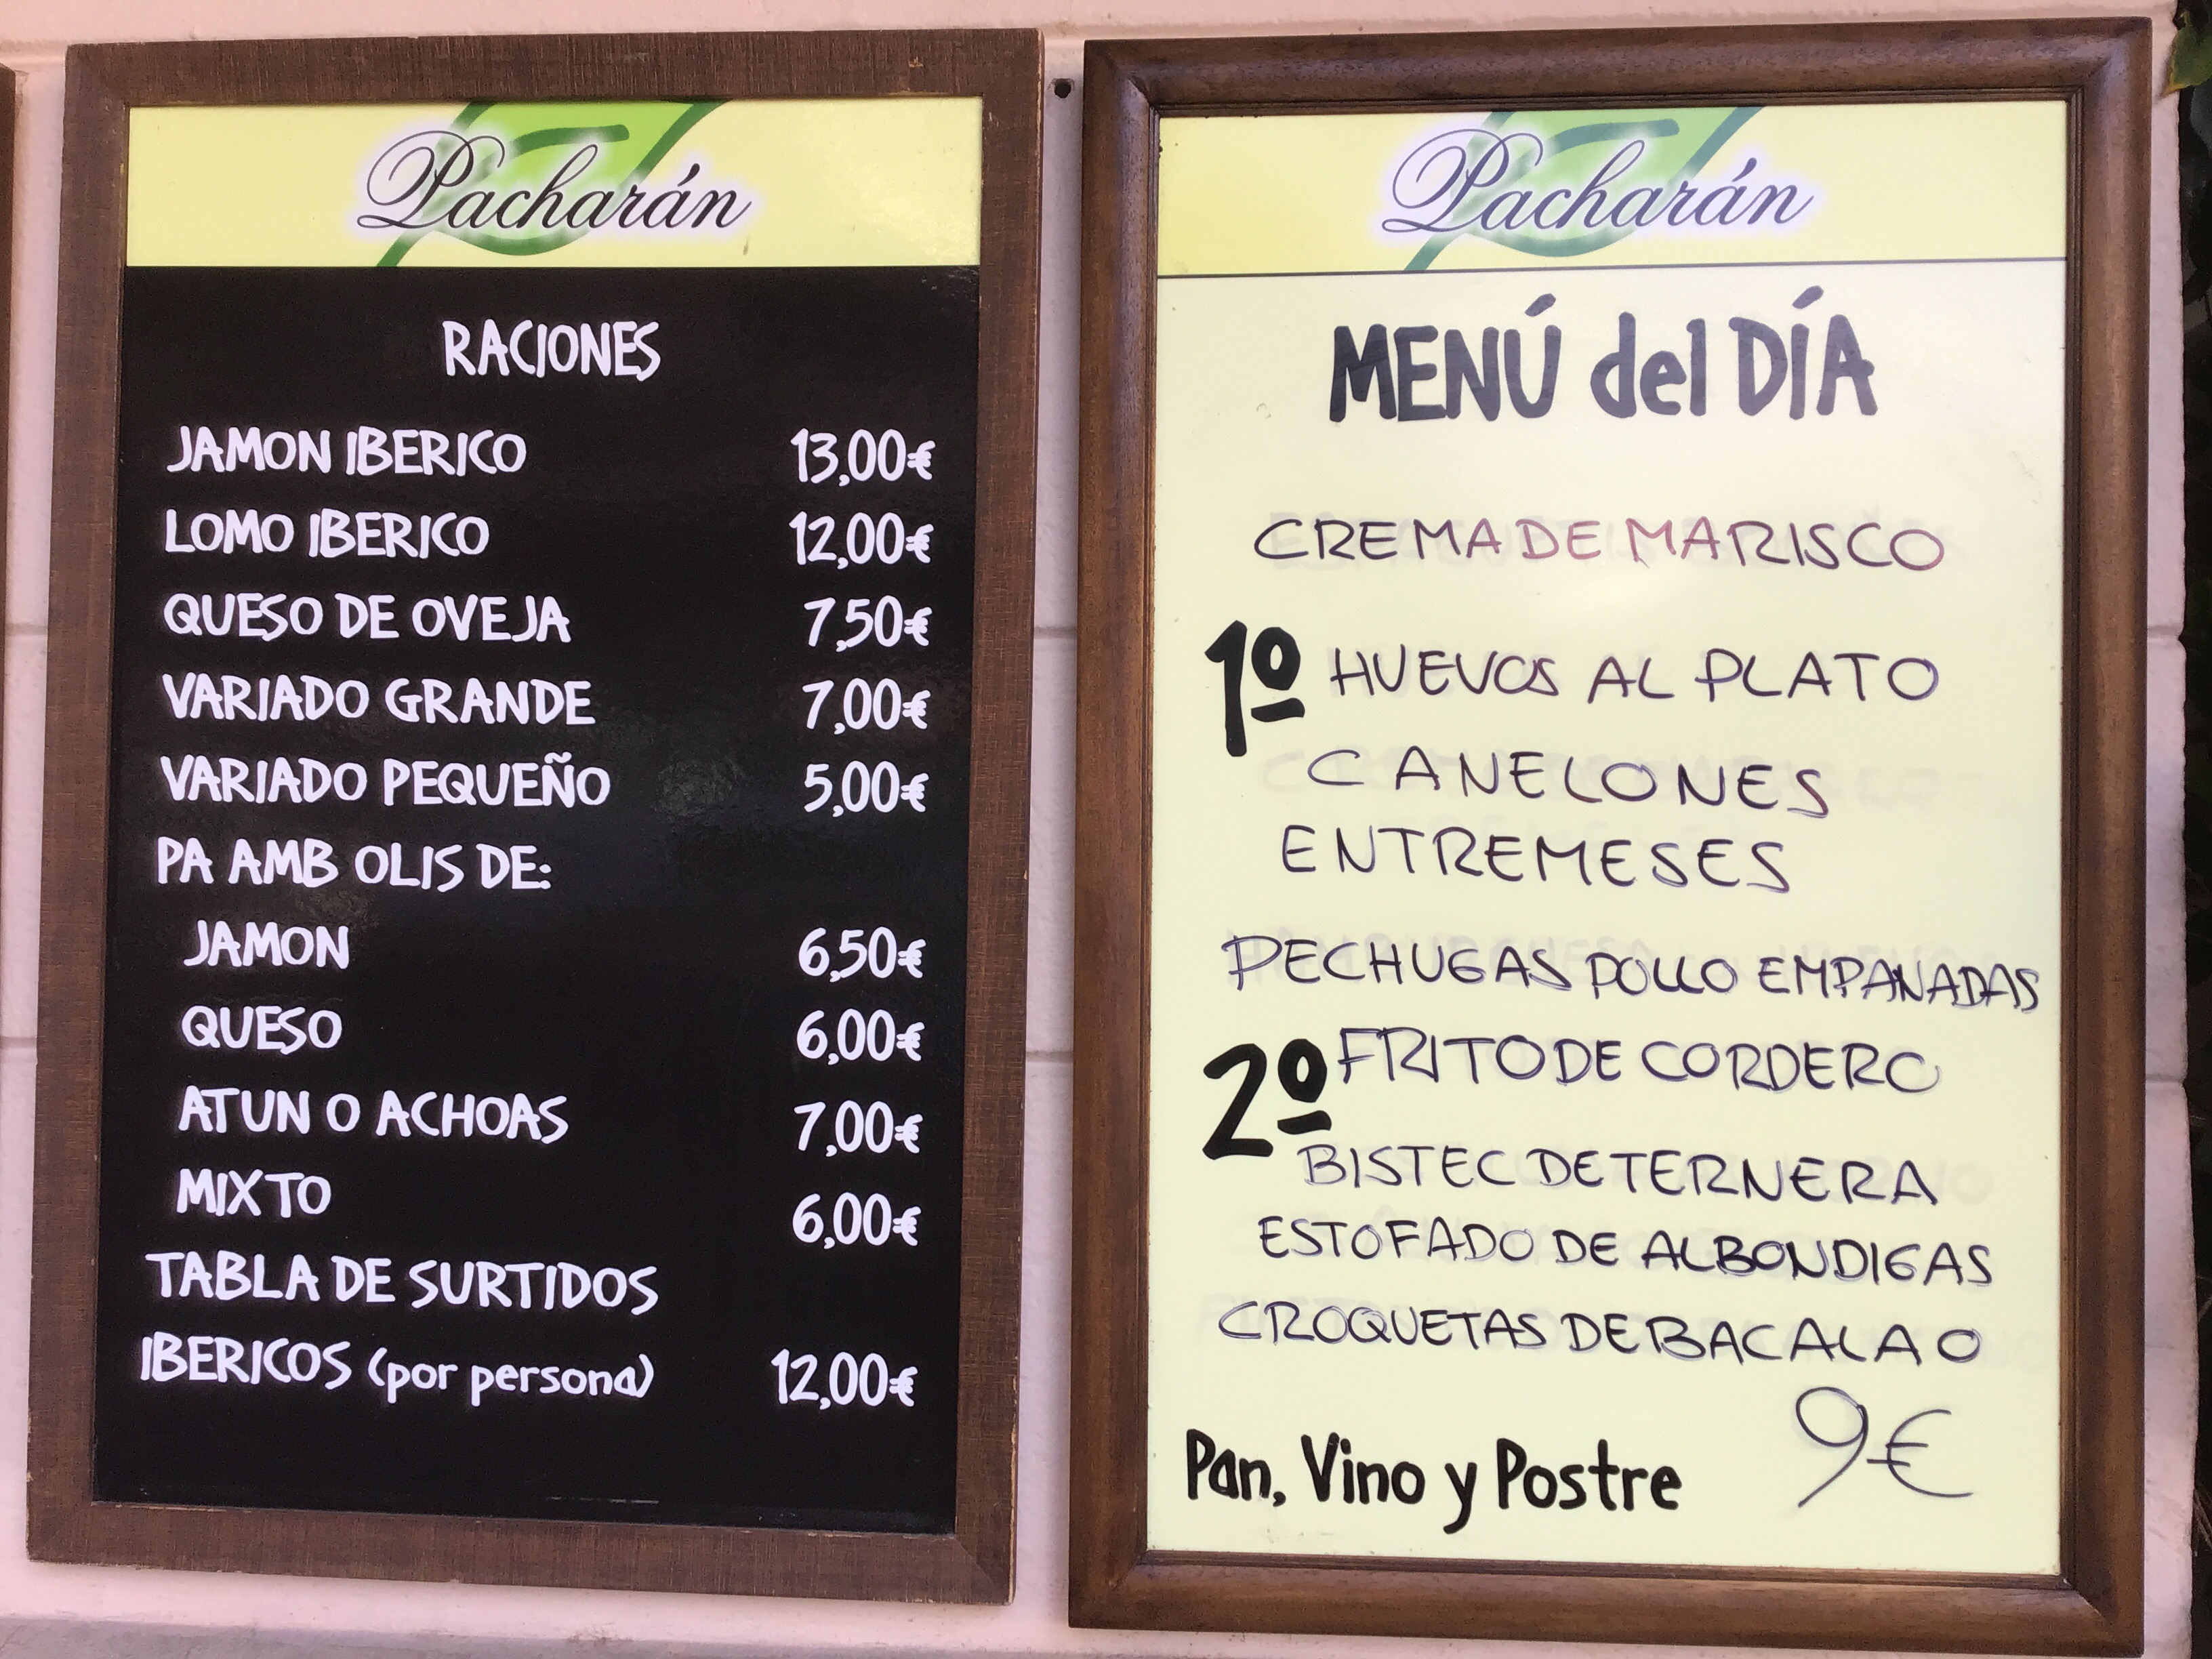 Pacharán
RACIONES
JAMON IBERICO 13,00€
LOMO IBERICO 12,00€
QUESO DE OVEJA 7,50€
VARIADO GRANDE 7,00€
VARIADO PEQUEÑO 5,00€
PA AMB OLIS DE:
JAMON 6,50€
QUESO 6,00€
ATUN O ACHOAS 7,00€
MIXTO 6,00€
TABLA DE SURTIDOS
IBERICOS (por persona) 12,00€
Pacharán
MENÚ del DÍA
CREMA DE MARISCO
1º HUEVOS AL PLATO
CANELONES
ENTREMESES
PECHUGAS POLLO EMPANADAS
2º FRITO DE CORDERO
BISTEC DE TERNERA
ESTOFADO DE ALBONDIGAS
CROQUETAS DE BACALAO
9€
Pan, Vino y Postre